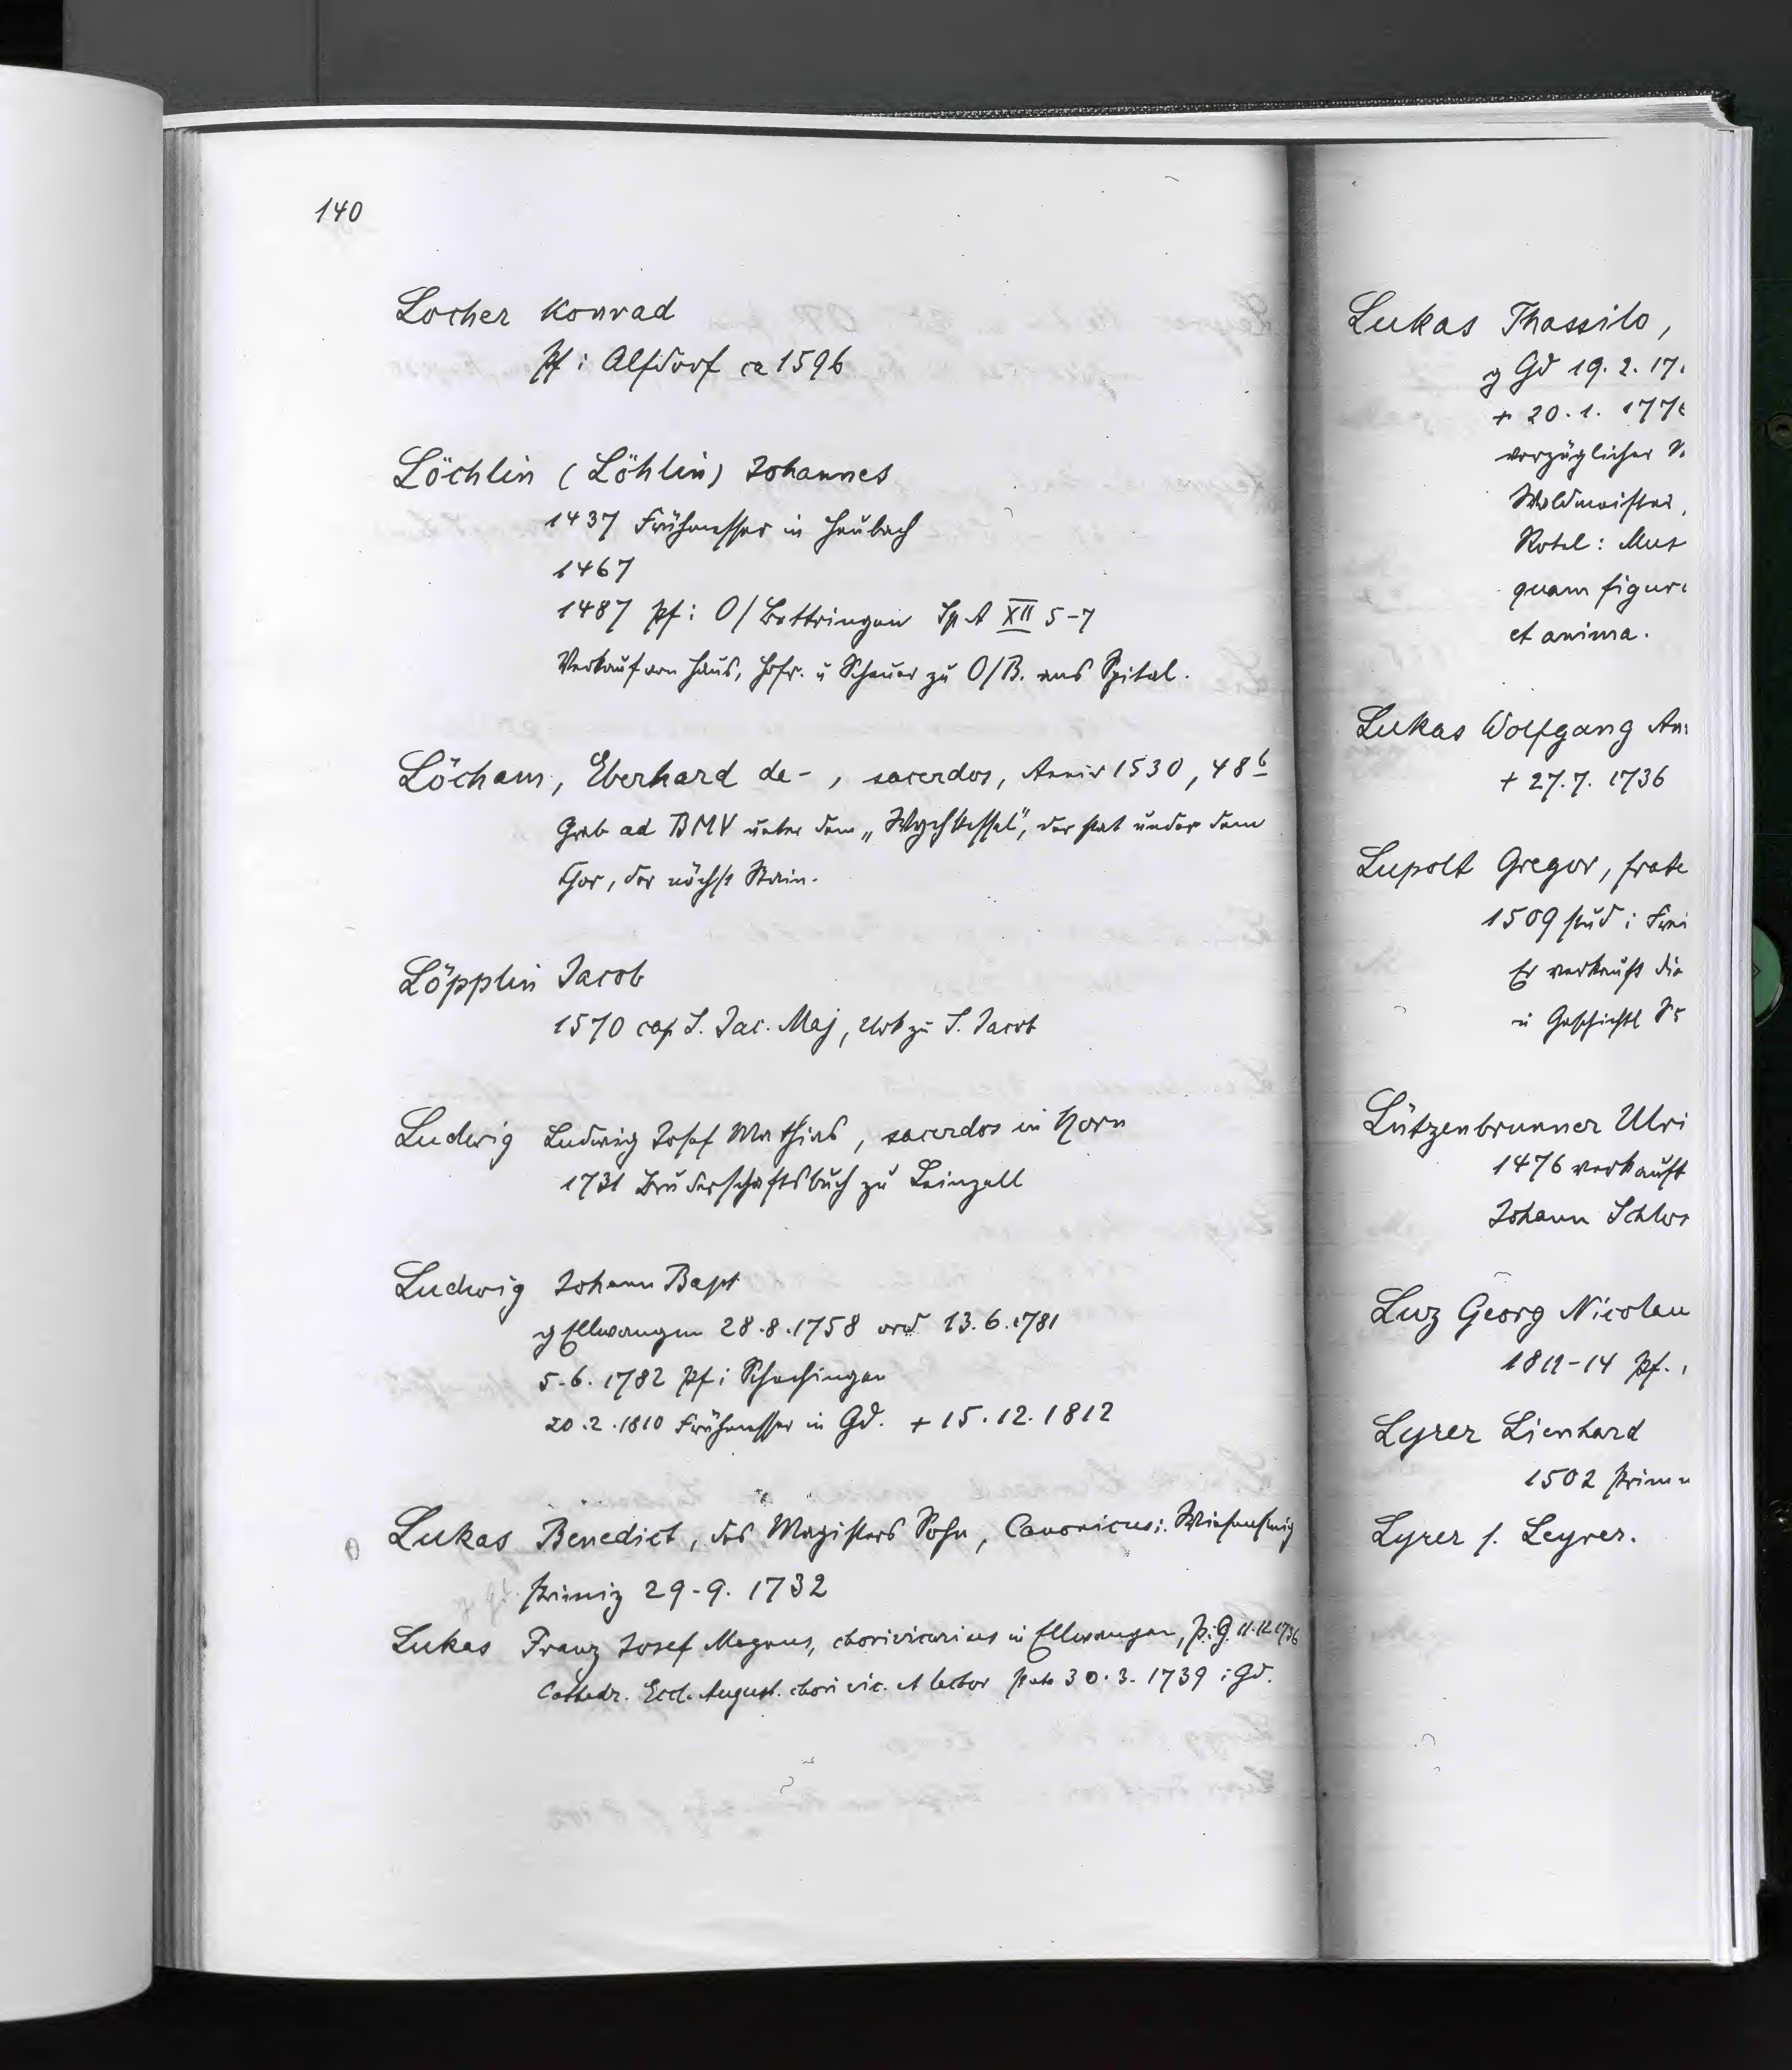 140
Locher Konrad
Pf i Alfdorf ca 1596
Löchlin (Löhlin) Johannes
1437 Frühmesser in Heubach
1467
1487 Pf i O/Bettringen Sp A XII 5-7
Verkauf von Haus, Hofr. u Scheuer zu O/B. ans Spital.
Löcham, Eberhard de-, sacerdos, Anniv 1530, 48b
Grab ad BMV unter dem „Wychkessel", der stat under dem
Chor, der nächst Stain.
Löpplin Jacob
1570 cap S. Jac. Maj, Urk zu S. Jacob
Ludwig Ludwig Josef Mathias, sacerdos in Horn
1731 Bruderschaftsbuch zu Leinzell
Ludwig Johann Bapt
g Ellwangen 28.8.1758 ord 13.6.1781
5.6.1782 Pf i Schechingen
20.2.1810 Frühmesser in Gd. + 15.12.1812
Lukas Benedict, des Magisters Sohn, Canonicus i. Wiesensteig
Primiz 29.9.1732
Lukas Franz Josef Magnus, chorivicarius in Ellwangen, P. i G. 11.12.1736
Cathedr. Eccl. August. chori vic. et lector 30.3.1739 i Gd.
Lukas Thassilo,
g Gd 19.2.17
+ 20.1.177
vorzüglicher
Waldmeister,
Rotel: Mus
quam figur
et anima.
Lukas Wolfgang An
+ 27.7.1736
Lupolt Gregor, frate
1509 stud i Frei
Er verkauft die
u Geschichtl
Lützenbrunner Ulri
1476 verkauft
Johann Schlos
Luz Georg Nicolau
1811-14 Pf.
Lyrer Lienhard
1502 Prim
Lyrer s. Leyrer.